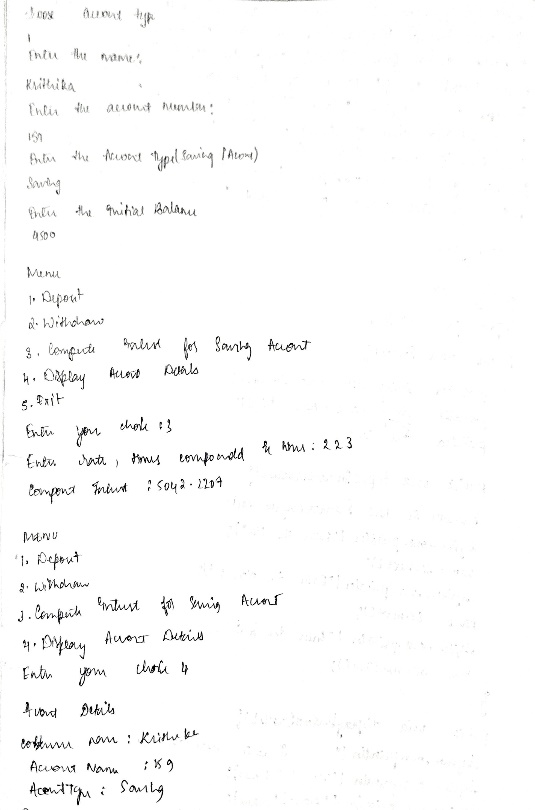 Account type
1
Enter the name:
Krithika
Enter the account number:
189
Enter the Account Type (Saving /
Saving
Enter the Initial Balance
4500
Menu
1. Deposit
2. Withdraw
3. Compute Interest for Saving Account
4. Display Account Details
5. Exit
Enter your choice : 3
Enter rate, times compounded & time : 2 2 3
Compount Interest : 5042.2207
MENU
1. Deposit
2. Withdraw
3. Compute Interest for Saving Account
4. Display Account Details
Enter your choice 4
Account Details
name : Krithika
Account Name : 189
Account Type : Saving